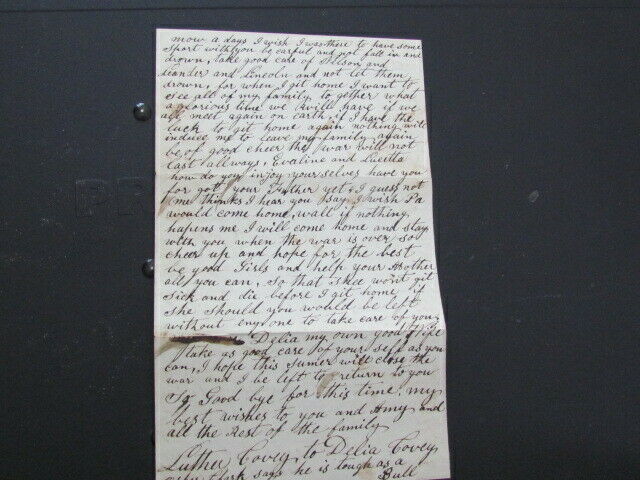 now a days I wish I was there to have some
sport with you be carful and not fall in and
drown, take good care of Nelson and
Leander and Lincoln and not let them
drown, for when I git home I want to
see all of my family to gether what
a glorious time we will have if we
all meet again on earth, if I have the
luck to git home again nothing will
induce me to leave my family again
be of good cheer the war will not
last allways, Evaline and Lucetta
how do you injoy your selves have you
for got your Father yet, I guess not
me thinks I hear you say I wish Pa
would come home, wall if nothing
hapens me I will come home and stay
with you when the war is over so
cheer up and hope for the best
be good Girls and help your Mother
all you can, so that shee wont git
sick and die before I git home, if
she should you would be left
without eny one to take care of you
Delia my own good Wife
take as good care of your self as you
can, I hope this sumer will close the
war and I be left to return to you
So Good bye for this time, my
best wishes to you and Amy and
all the Rest of the family
Luther Covey, to Delia Covey
says he is tough as a
Bull